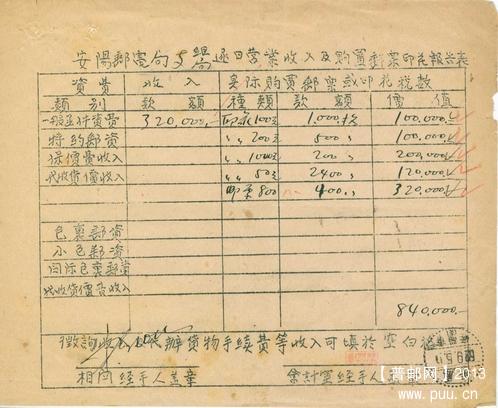 安陽郵電局 組 逐日营業收入及购買郵票印花報告表
資費 收入 实际购買郵票或印花税数
類别 款額 種類 款額 價值
一般函件資費 320,000.- 印花100元 1,000枚 100,000.-
特约郵資 〃〃200元 500〃 100,000.-
保價費收入 〃〃1000元 200〃 200,000.-
代收貨價收入 〃〃50元 2400〃 120,000.-
郵票800 400〃 320,000.-
包裹郵資
小包郵資
国际包裹郵資
代收貨價包收入
840,000.-
辦貨物手续費等收入可填於空白
相関经手人盖章 會计室经手人
【普邮网】2013
www.puu.cn